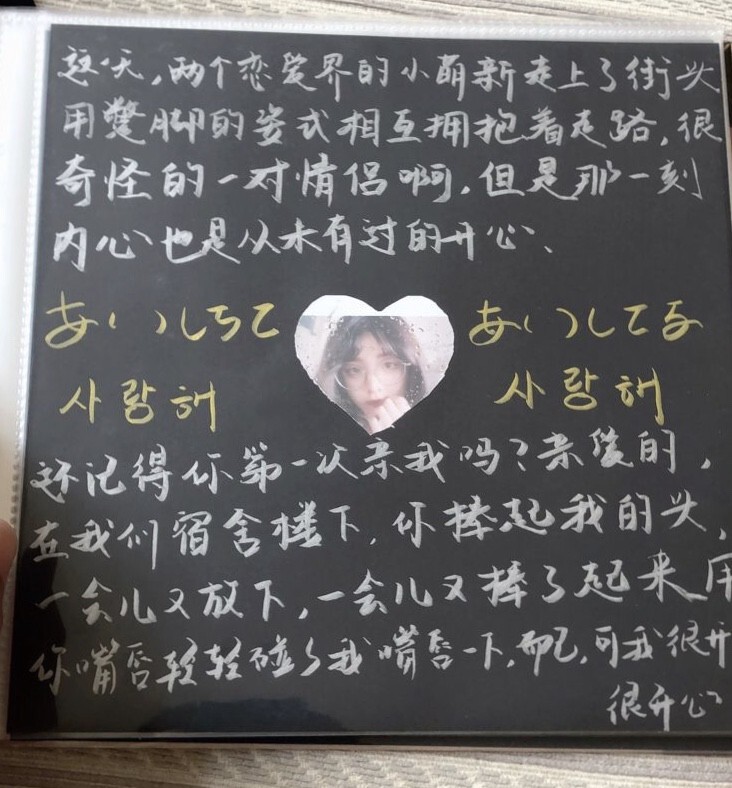 这天,两个恋爱界的小萌新走上了街头
用蹩脚的姿式相互拥抱着走路,很
奇怪的一对情侣啊,但是那一刻
内心也是从未有过的开心、
あいしちて あいしてる
사랑해 사랑해
还记得你第一次亲我吗?亲爱的,
在我们宿舍楼下,你捧起我的头,
一会儿又放下,一会儿又捧了起来用
你嘴唇轻轻碰了我嘴唇一下,而已,可我很开
很开心